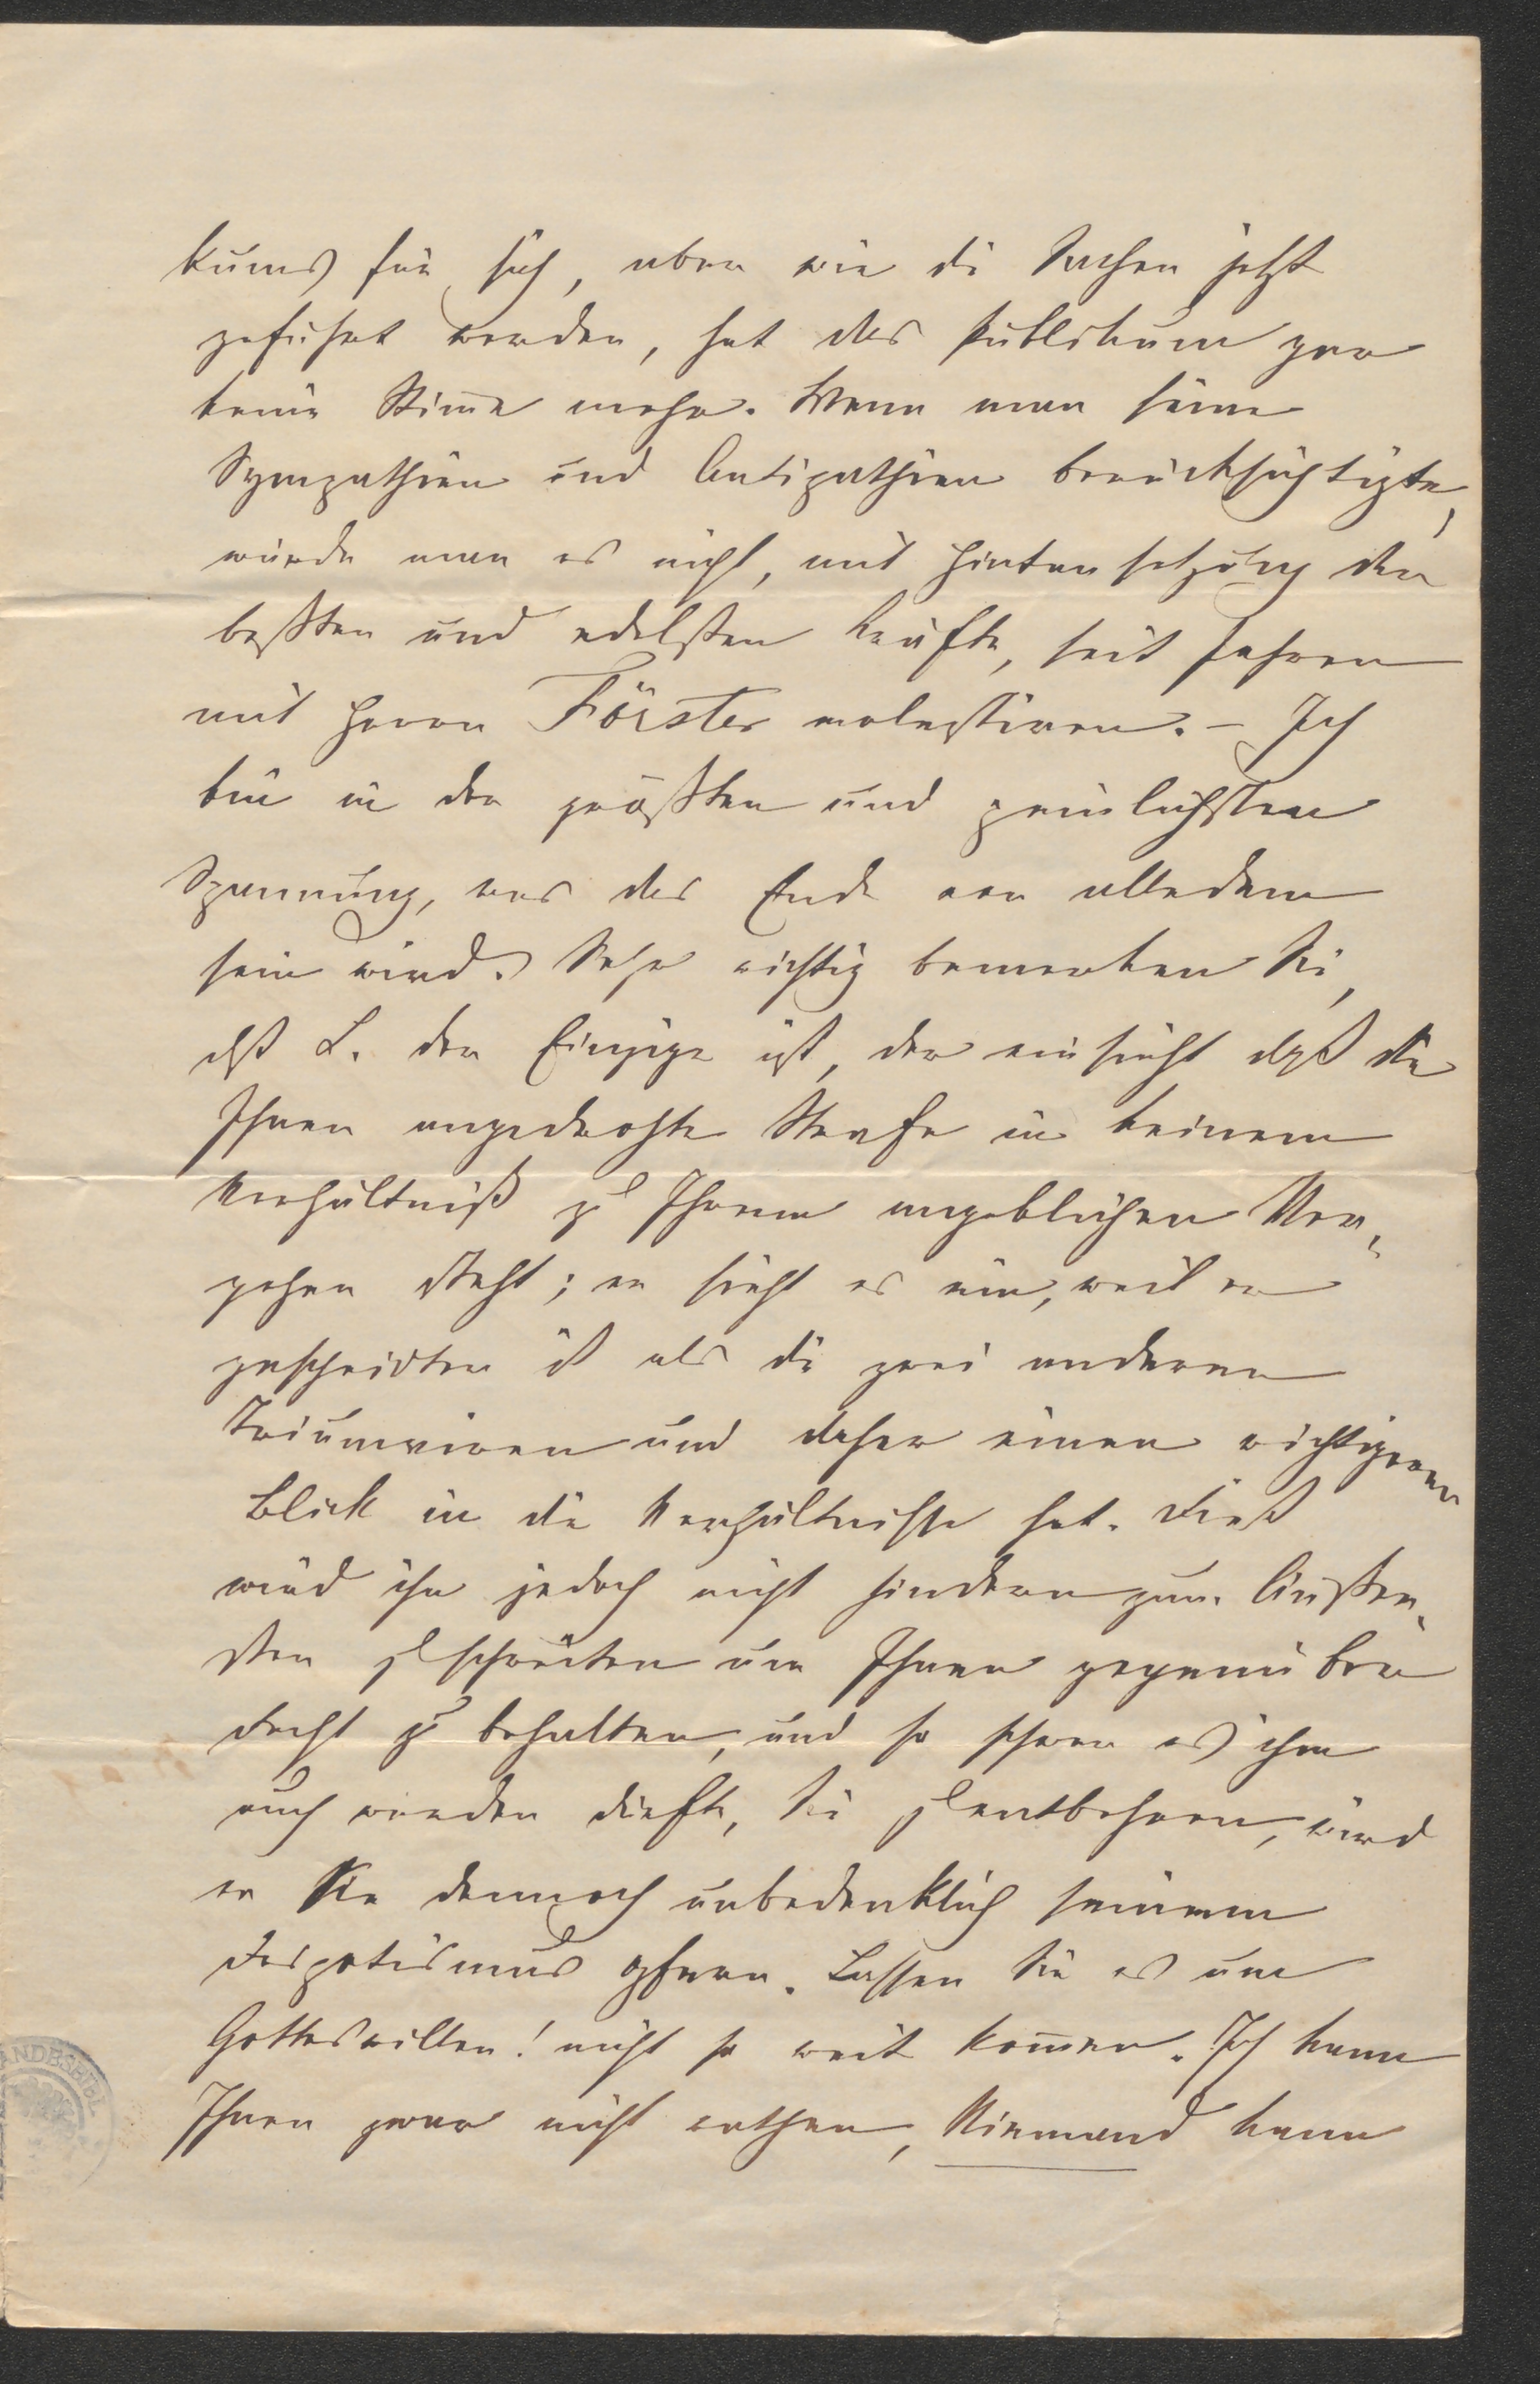 kums für sich, aber wie die Sachen jetzt
geführt werden, hat das Publikum gar
keine Stimme mehr. Wenn man seine
Sympathien und Antipathien berücksichtigte,
würde man es nicht, mit Hintansetzung der
beßten und edelsten Kräfte, seit Jahren
mit Herrn Förster molestiren. – Ich
bin in der größten und peinlichsten
Spannung, was das Ende von alledem
sein wird. Sehr richtig bemerken Sie,
daß L. der Einzige ist, der einsieht daß die
Ihnen angedrohte Strafe in keinem
Verhältniß zu Ihrem angeblichen Ver-
gehen steht; er sieht es ein, weil er
gescheidter ist als die zwei anderen
Triumviren und daher einen richtigeren
Blick in die Verhältnisse hat. Dieß
wird ihn jedoch nicht hindern zum Äußer-
sten zu schreiten um Ihnen gegenüber
Recht zu behalten, und so schwer es ihm
auch werden dürfte, Sie zu entbehren, wird
er Sie dennoch unbedenklich seinem
Despotismus opfern. Lassen Sie es um
Gotteswillen! nicht so weit kommen. Ich kann
Ihnen zwar nicht rathen, Niemand kann
LANDESBIBL